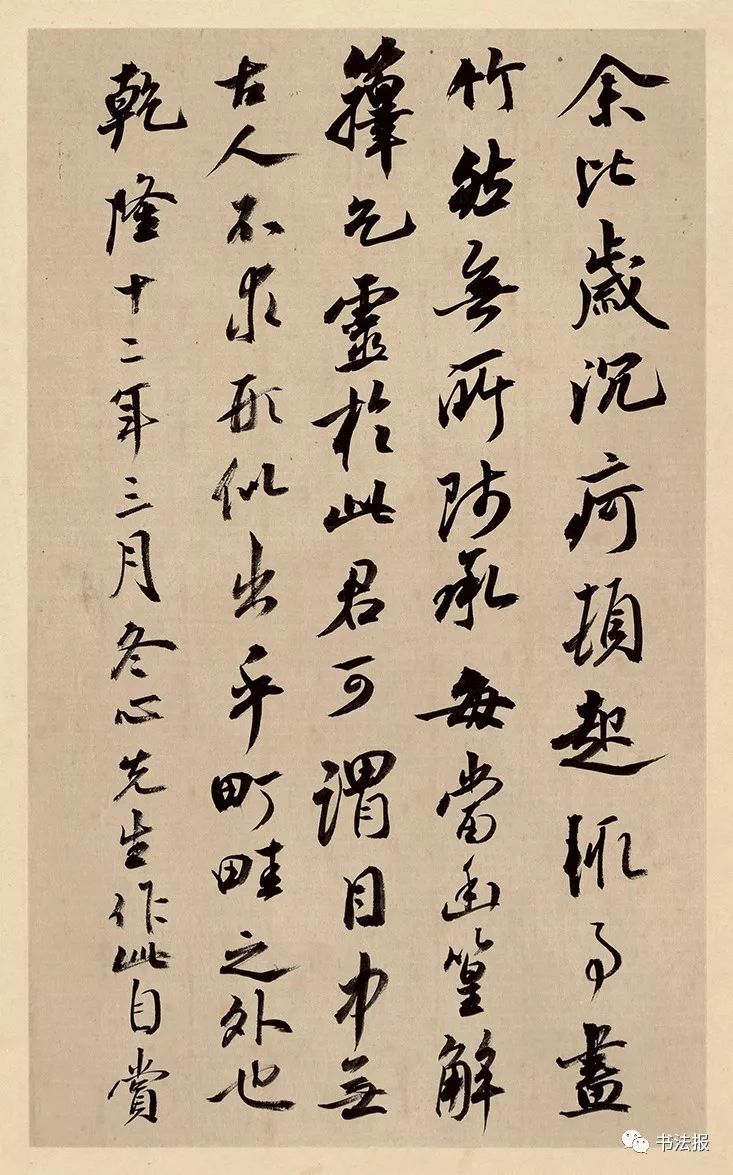 余比歲沉疴頓起輒事畫
竹然無所師承每當幽篁解
籜乞靈於此君可謂目中無
古人不求形似出乎町畦之外也
乾隆十二年三月冬心先生作此自賞
书法报